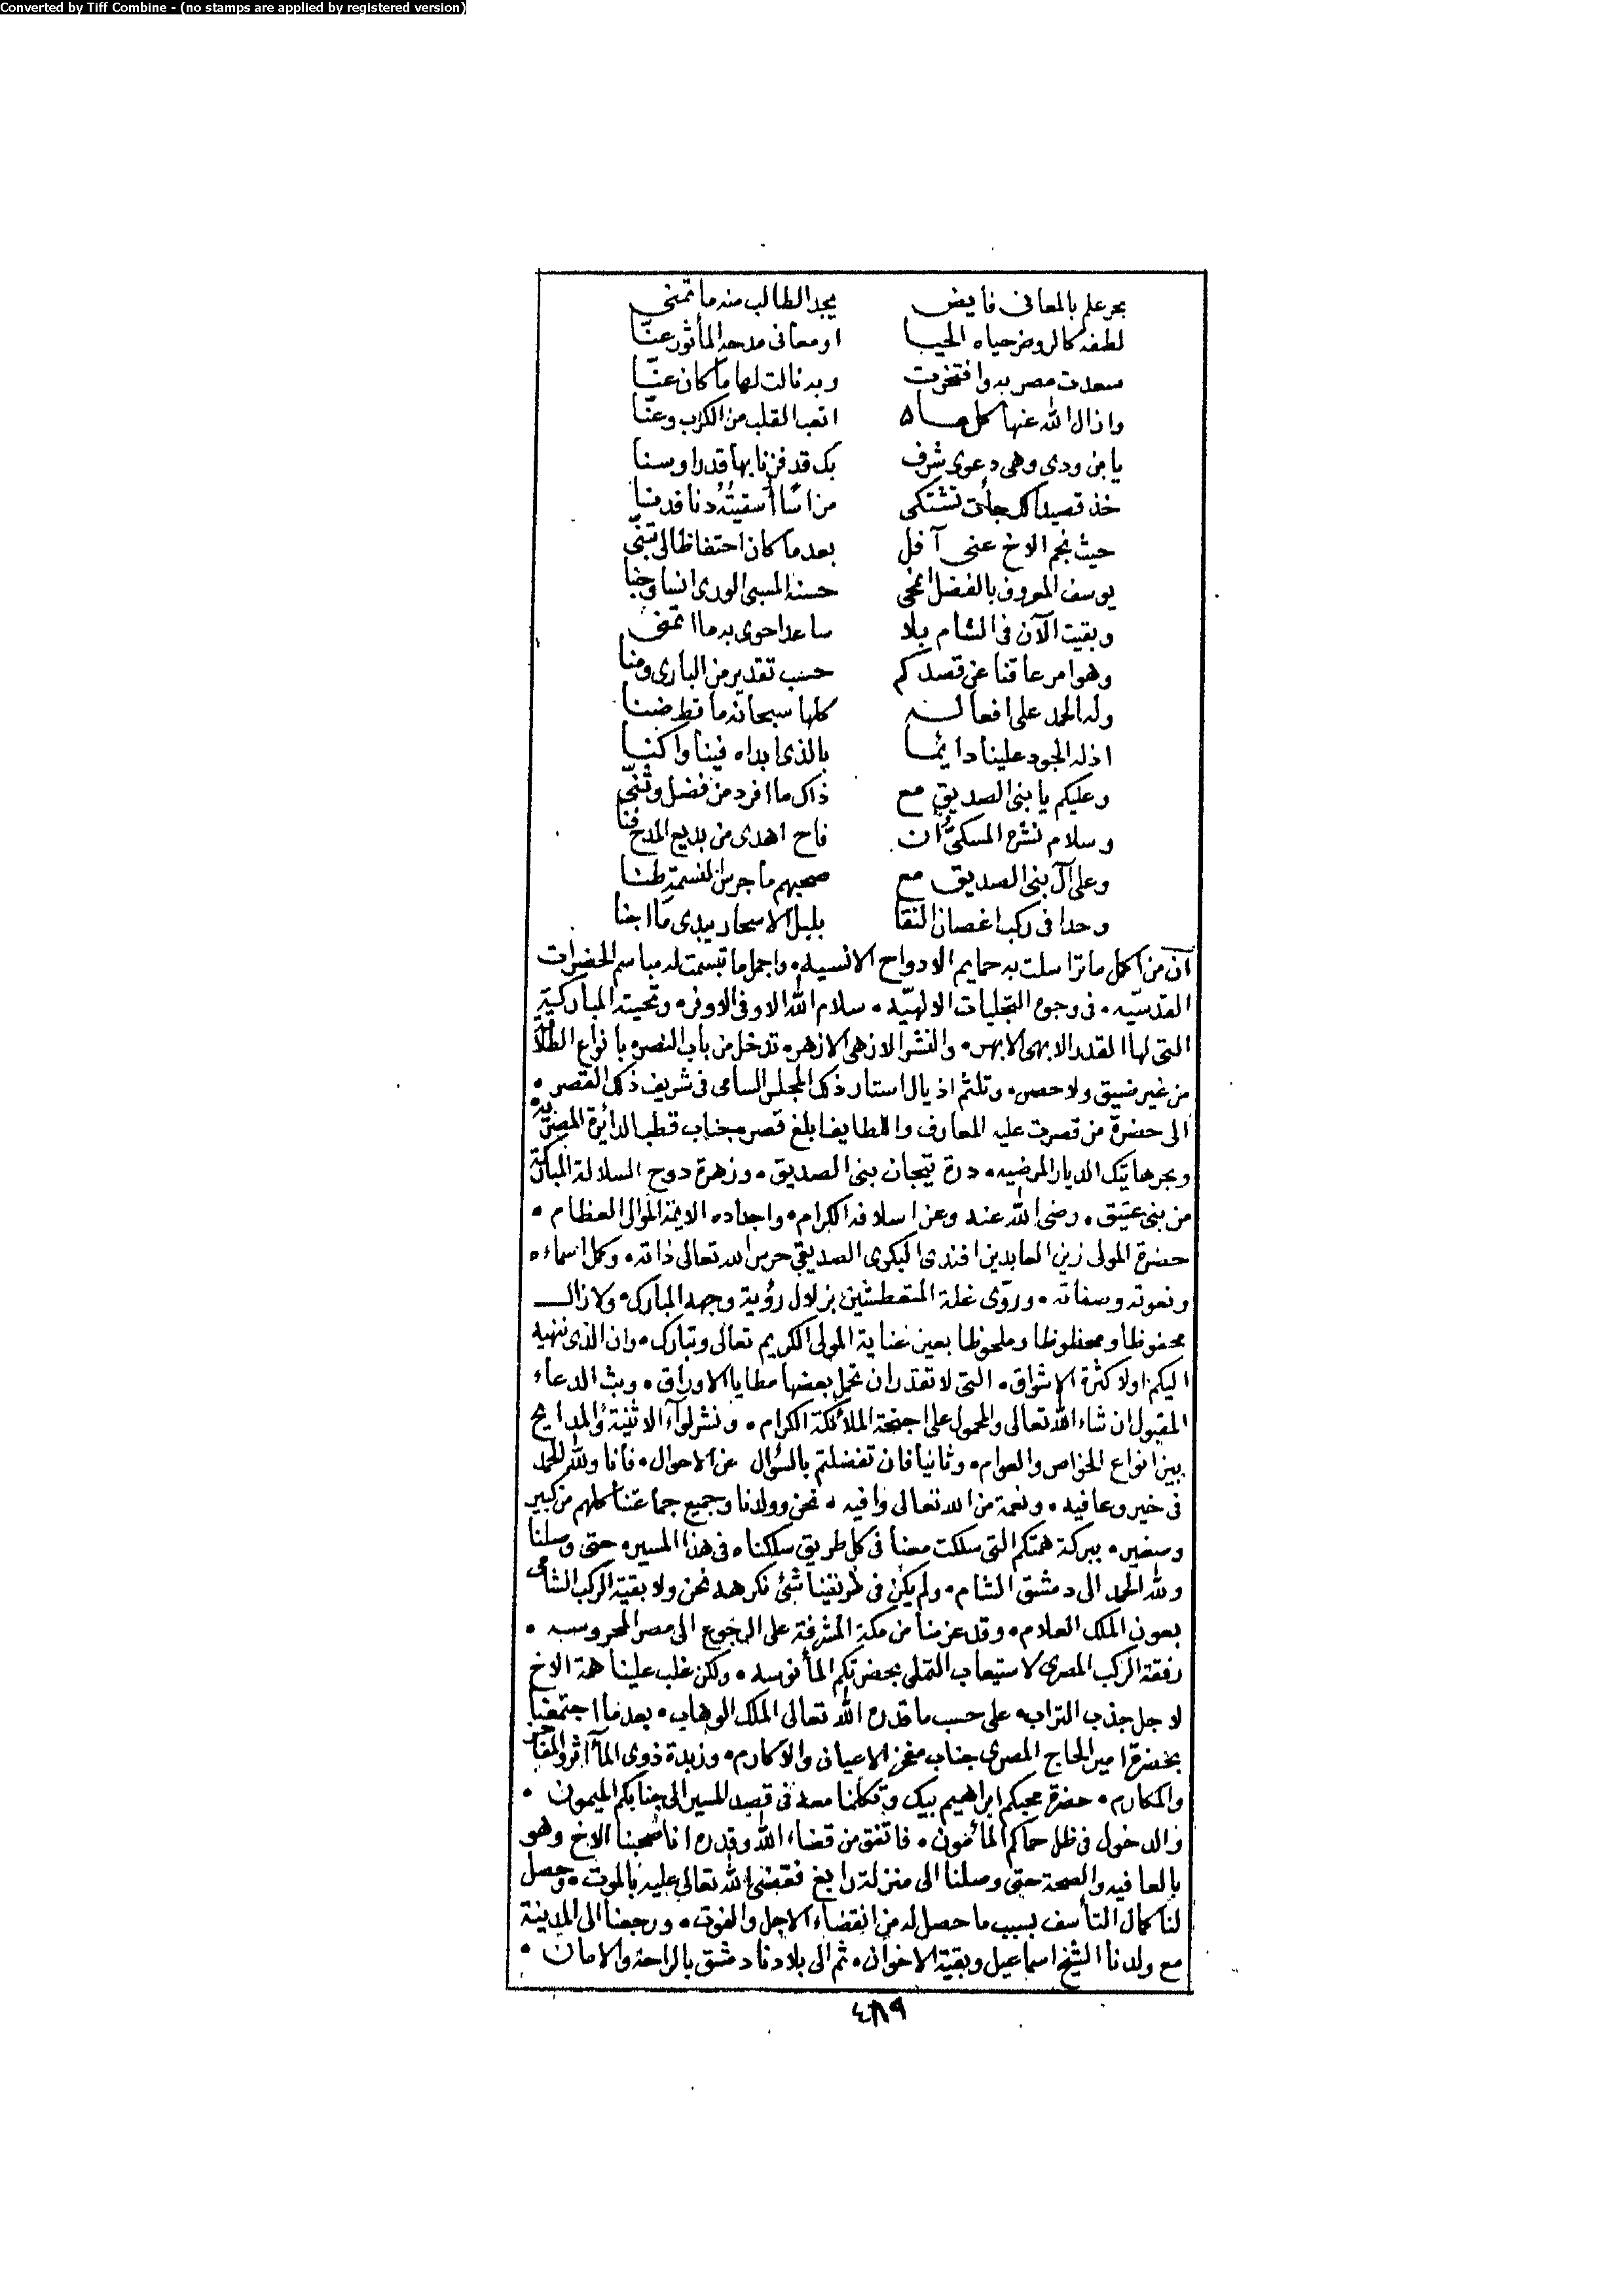 Converted by Tiff Combine - (no stamps are applied by registered version)
بحر علم بالمعانى فايض يجد الطالب منه ما تمنى
لطفه كالروض حياه الحيا او معانى مدحه المأثور عنّا
سعدت مصر به وافتخرت وبه نالت لها ما كان عنّا
وازال الله عنها كل ما اتعب القلب من الكرب وعنّا
يا بن ودى وهى دعوى شرف بك قد فزنا بها قدرا وسنا
خذ قصيدا لك جأت تشتكى من اسًا أسقيتُهُ دنا فدنا
حيث نجم الاخ عنى آفل بعد ما كان احتفاظا لى تبنّى
يوسف المعروف بالفضل اخى حسنه المسبى الورى انسا وجنا
وبقيت الآن فى الشام بلا ساعد احوى به ما اتمنى
وهو امر عاقنا عن قصدكم حسب تقدير من البارى ومنا
وله الحمد على افعاله كلها سبحانه ما قط ضنا
اذ له الجود علينا دايما بالذى ابداه فينا واكنا
وعليكم يا بنى الصديق مع ذاك ما افرد من فضل وثنّى
وسلام نشره المسكىُّ ان فاح اهدى من بديع المدح فنا
وعلى آل بنى الصديق مع صحبهم ما جرس النسمة طنا
وحدا فى ركب اغصان النقا بلبل الاسحار يبدى ما اجنا
آن من اكمل ما تراسلت به حمايم الارواح الانسيه، واجمل ما تبسمت له مباسم الحضرات
القدسيّه، فى وجوه التجليات الالهيّه، سلام الله الاوفى الاوفر، وتحيته المباركية
التى لها القدر الابهى الابهر، والنشر الازهى الازهر، تدخل من باب النصر، بانواع
من غير ضيق ولا حصر، وتلثم اذيال استار ذلك المجلس السامى فى شريف ذلك القصر،
الى حضرة من قصرت عليه المعارف واللطايف ابلغ قصر، جناب قطب الدائرة المصريّه
وبحر هاتيك الديار المرضيه، درة تيجان بنى الصديق، وزهرة دوح السلالة المباركة
من بنى عتيق، رضى الله عنه وعن اسلافه الكرام، واجداده الايمة الموالى العظام،
حضرة المولى زين العابدين افندى البكرى الصديقى حرس الله تعالى ذاته، وكمل اسماءه
ونعوته وصفاته، وروّى غلة المتعطشين بزلال رؤية وجهه المبارك، ولا زالـ
محفوظا ومحظوظا وملحوظا بعين عناية المولى الكريم تعالى وتبارك، وان الذى ننهيه
اليكم اولا كثرة الاشواق، التى لا تقدر ان تحمل بعضها مطايا الاوراق، وبث الدعاء
المقبول ان شاء الله تعالى والمحمول على اجنحة الملائكة الكرام، ونشر لوآء الاثنية والمدايح
بين انواع الخواص والعوام، وثانيا فان تفضلتم بالسؤال عن الاحوال، فانا ولله الحمد
فى خير وعافيه، ونعمة من الله تعالى وافيه، نحن وولدنا وجميع جماعتنا كلهم من كبير
وصغير، ببركة همتكم التى سلكت معنا فى كل طريق سلكناه فى هذا المسير، حتى وصلنا
ولله الحمد الى دمشق الشام، ولم يكن فى طريقنا شئ نكرهه نحن ولا بقية الركب الشامى
بعون الملك العلام، وقد عزمنا من مكة المشرفة على الرجوع الى مصر المحروسه،
رفقة الركب المصرى لاستيعاب التملى بحضرتكم المأنوسه، ولكن غلب علينا همة الاخ
لاجل جذب التراب، على حسب ما قدره الله تعالى الملك الوهاب، بعد ما اجتمعنا
بحضرة امير الحاج المصرى جناب مفخر الاعيان والاكارم، وزبدة ذوى المآثر والمفاخر
والمكارم، حضرة محبكم ابراهيم بيك وتكلمنا معه فى قصد المسير الى جنابكم الميمون،
والدخول فى ظل حماكم المأمون، فاتفق من قضاء الله وقدره انا صحبنا الاخ وهو
بالعافيه والصحة حتى وصلنا الى منزلة رابغ فقضى الله تعالى عليه بالموت، وحصل
لنا كمال التأسف بسبب ما حصل له من انقضاء الاجل والفوت، ورجعنا الى المدينة
مع ولدنا الشيخ اسماعيل وبقية الاخوان، ثم الى بلادنا دمشق بالراحة والامان،